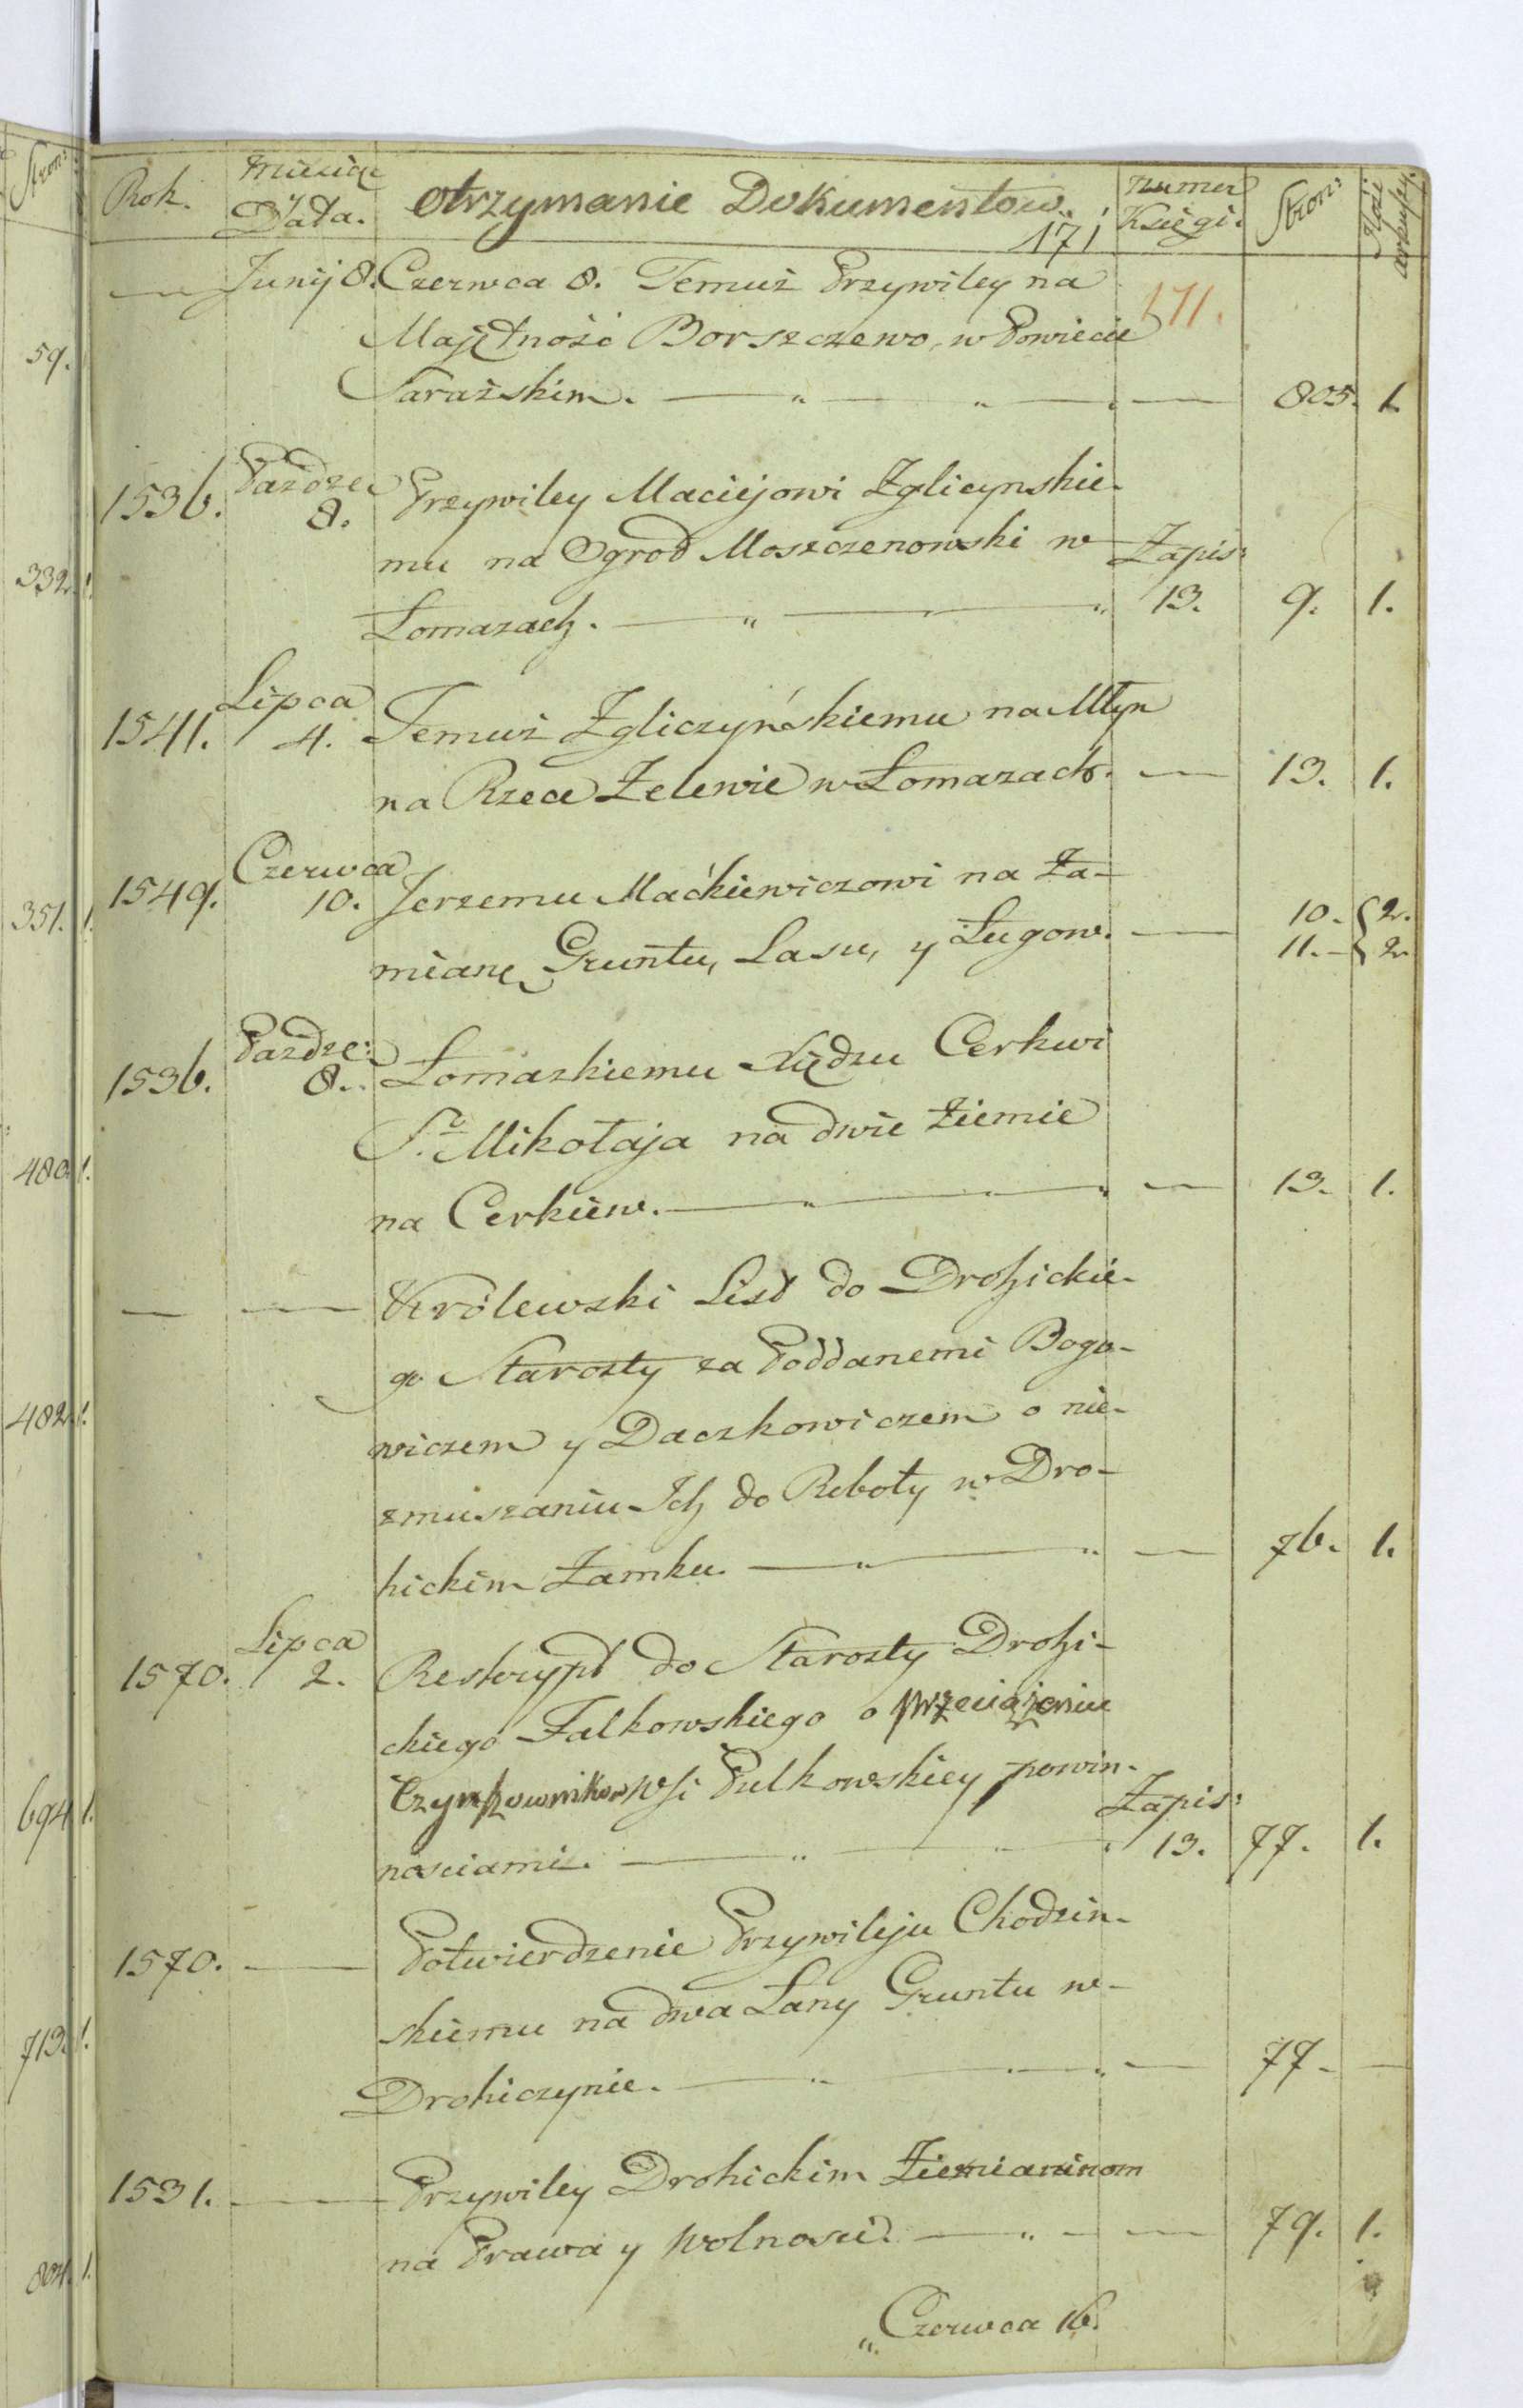 Stron:
59.
332. 1.
351. 1.
480. 1.
482. 1.
694. 1.
713. 1.
804. 1.
Rok. Miesiąc y Data. Otrzymanie Dokumentow. numer Księgi. Stron: Ilość arkuszy.
171
171.
— Junij 8. Czerwca 8. Temuż Przywiley na
Majętność Borszczewo, w Powiecie
Sarażskim. — — 805. 1.
1536. Paździer 8. Przywiley Maciejowi Zglicynskie-
mu na Ogrod Moszczenowski w Zapis:
Łomazach. — 13. 9. 1.
1541. Lipca 4. Temuż Zgliczyńskiemu na Młyn
na Rzece Zelewie w Łomazach. — 13. 1.
1549. Czerwca 10. Jerzemu Maćkiewiczowi na Za-
mianę Gruntu, Lasu, y Ługow. — 10. 2.
11. 2.
1536. Paździe: 8. Łomazkiemu Xiędzu Cerkwi
So. Mikołaja na dwie Ziemie
na Cerkiew. — — 13. 1.
— — Królewski List do Drohickie-
go Starosty za Poddanemi Bogo-
wiczem y Daczkowiczem o nie-
zmuszaniu Ich do Roboty w Dro-
hickim Zamku. — — 76. 1.
1570. Lipca 2. Reskrypt do Starosty Drohi-
ckiego Falkowskiego o przeciążeniu
Czynszownikow Wsi Pulkowskiey powin-
nosciami. — Zapis: 13. 77. 1.
1570. — Potwierdzenie Przywileju Chodzin-
skiemu na dwa Łany Gruntu w-
Drohiczynie. — — 77. —
1531. — Przywiley Drohickim Ziemianinom
na Prawa y Wolnosci. — — 79. 1.
„Czerwca 16.